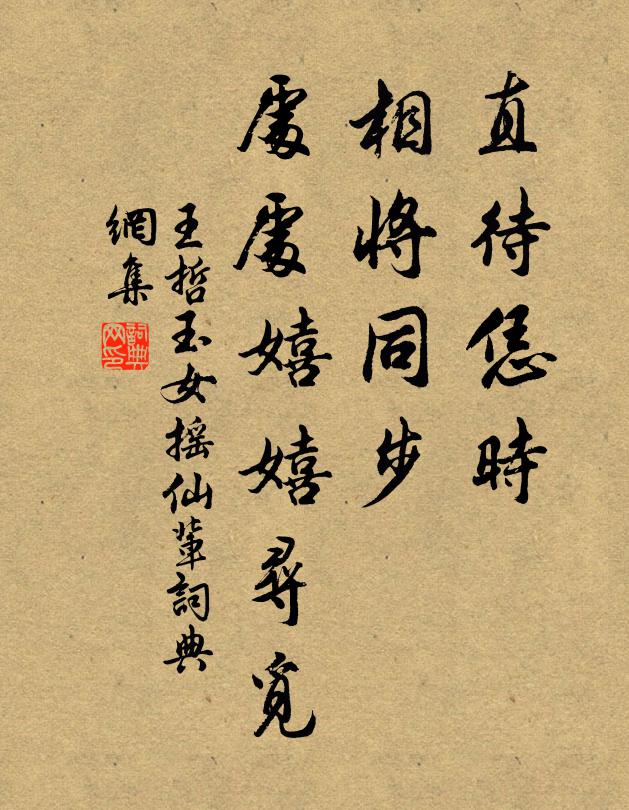 直待恁時
相將同步
處處嬉嬉尋覓
王哲玉女搖仙輩詞典
網集
詞典
网印